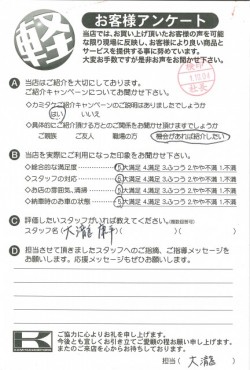 軽
お客様アンケート
当店では、お買い上げ頂いたお客様の声を可能
な限り現場に反映し、お客様により良い商品と
サービスを提供する事に努めています。
大変お手数ですが是非お声をお聞かせ下さい。
A 当店はご紹介を大切にしております。
ご紹介キャンペーンについてお聞かせ下さい。
◇カミタケご紹介キャンペーンのご説明はありましたでしょうか
はい いいえ
◇具体的にご紹介頂ける方とのご関係をお聞かせ頂けますでしょうか
ご親族 ご友人 職場の方 機会があれば紹介したい
B 当店を実際にご利用になった印象をお聞かせ下さい。
◇総合的な満足度 5大満足 4.満足 3.ふつう 2.やや不満 1.不満
◇スタッフの対応 5大満足 4.満足 3.ふつう 2.やや不満 1.不満
◇お店の雰囲気、清掃 5大満足 4.満足 3.ふつう 2.やや不満 1.不満
◇納車時のお車の状態 5大満足 4.満足 3.ふつう 2.やや不満 1.不満
C 評価したいスタッフがいれば教えてください。
スタッフ名( 大瀧 )
D 担当させて頂きましたスタッフへのご指摘、ご指導メッセージを
お願いします。応援メッセージもぜひお願いします。
K
ご協力に心よりお礼を申し上げます。
今後とも宜しくお引き立てご愛顧の程お願い申し上げます。
またのご来店を心からお待ちしております。
担当( 大瀧 )